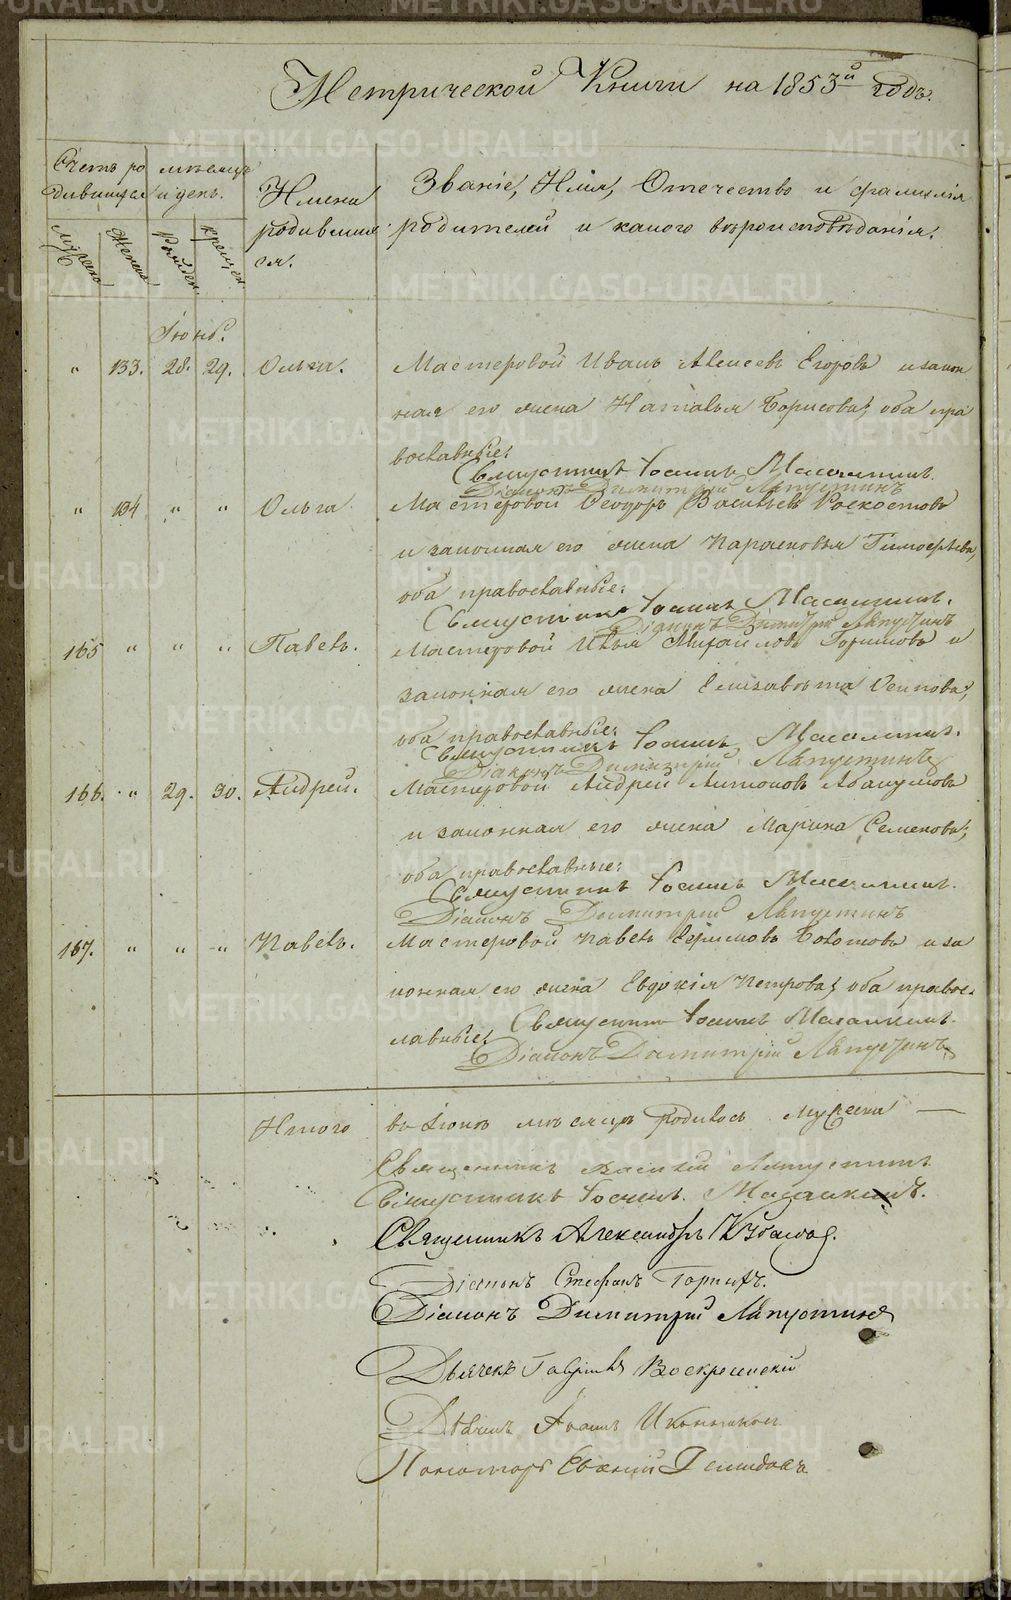 Метрической Книги на 1853й годъ.
Счетъ ро
дившихся
мѣсяцъ
и день.
Имена
родивших
ся.
Званіе, Имя, Отечество и фамилія
родителей и какого вѣроисповѣданія.
Мужеска
Женска
Рожден.
крещен.
Іюнь.
" 133. 28. 29. Ольга. Мастеровой Иванъ Алексеевъ Егоровъ и закон
ная его жена Наталья Борисова; оба пра
вославные;
Священникъ Іоаннъ
Діаконъ Димитрій Ляпустинъ
" 134 " " Ольга Мастеровой Ѳеодоръ Васильевъ
и законная его жена Парасковья Тимофеева,
оба православные;
Священникъ Іоаннъ
Діаконъ Димитрій Ляпустинъ
165 " " " Павелъ. Мастеровой Илья Михайловъ и
законная его жена Елисавета Осипова;
оба православные;
Священникъ Іоаннъ
Діаконъ Димитрій Ляпустинъ
166. " 29. 30. Андрей. Мастеровой Андрей Антоновъ Абакумовъ
и законная его жена Марина Семенова;
оба православные;
Священникъ Іоаннъ
Діаконъ Димитрій Ляпустинъ
167. " " " Павелъ. Мастеровой Павелъ Ефимовъ и за
конная его жена Евдокія Петрова; оба правос
лавные;
Священникъ Іоаннъ
Діаконъ Димитрій Ляпустинъ
Итого въ Іюнѣ мѣсяцѣ родилось мужеска —
Священникъ Василій Ляпустинъ
Священникъ Іоаннъ
Священникъ Александръ
Діаконъ Стефанъ Горныхъ.
Діаконъ Димитрій Ляпустинъ
Дьячекъ Гавріилъ Воскресенскій
Дьячекъ Іоаннъ
Пономарь Евгеній Демидовъ
METRIKI.GASO-URAL.RU